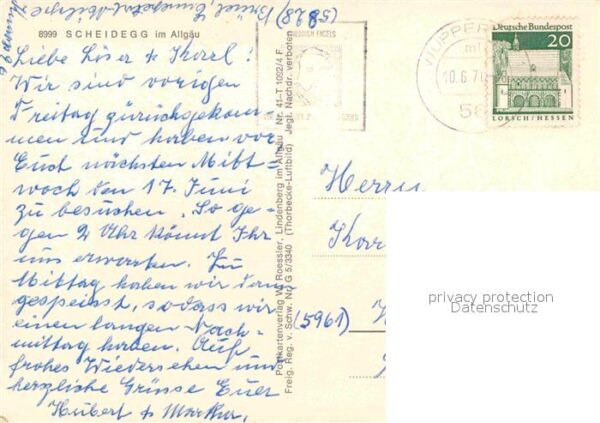 (5828)
8999 SCHEIDEGG im Allgäu
Liebe Löser & Karl!
Wir sind vorigen
Freitag zurückgekom-
men und haben vor
Euch nächsten Mitt-
woch den 17. Juni
zu besuchen. So ge-
gen 2 Uhr könnt Ihr
uns erwarten. Zu
Mittag haben wir dann
gespeisst, sodass wir
einen langen Nach-
mittag haben. Auf
frohes Wiedersehen und
herzliche Grüsse Euer
Hubert &
Postkartenverlag W. Roessler, Lindenberg im Allgäu Nr. 41-T 1092/4 F
Freig. Reg. v. Schw. Nr. G 5/3340 (Thorbecke-Luftbild) Jegl. Nachdr. verboten
FRIEDRICH ENGELS
WUPPER
10.6.70
56
Deutsche Bundespost
20
LORSCH/HESSEN
Herrn
(5961)
privacy protection
Datenschutz